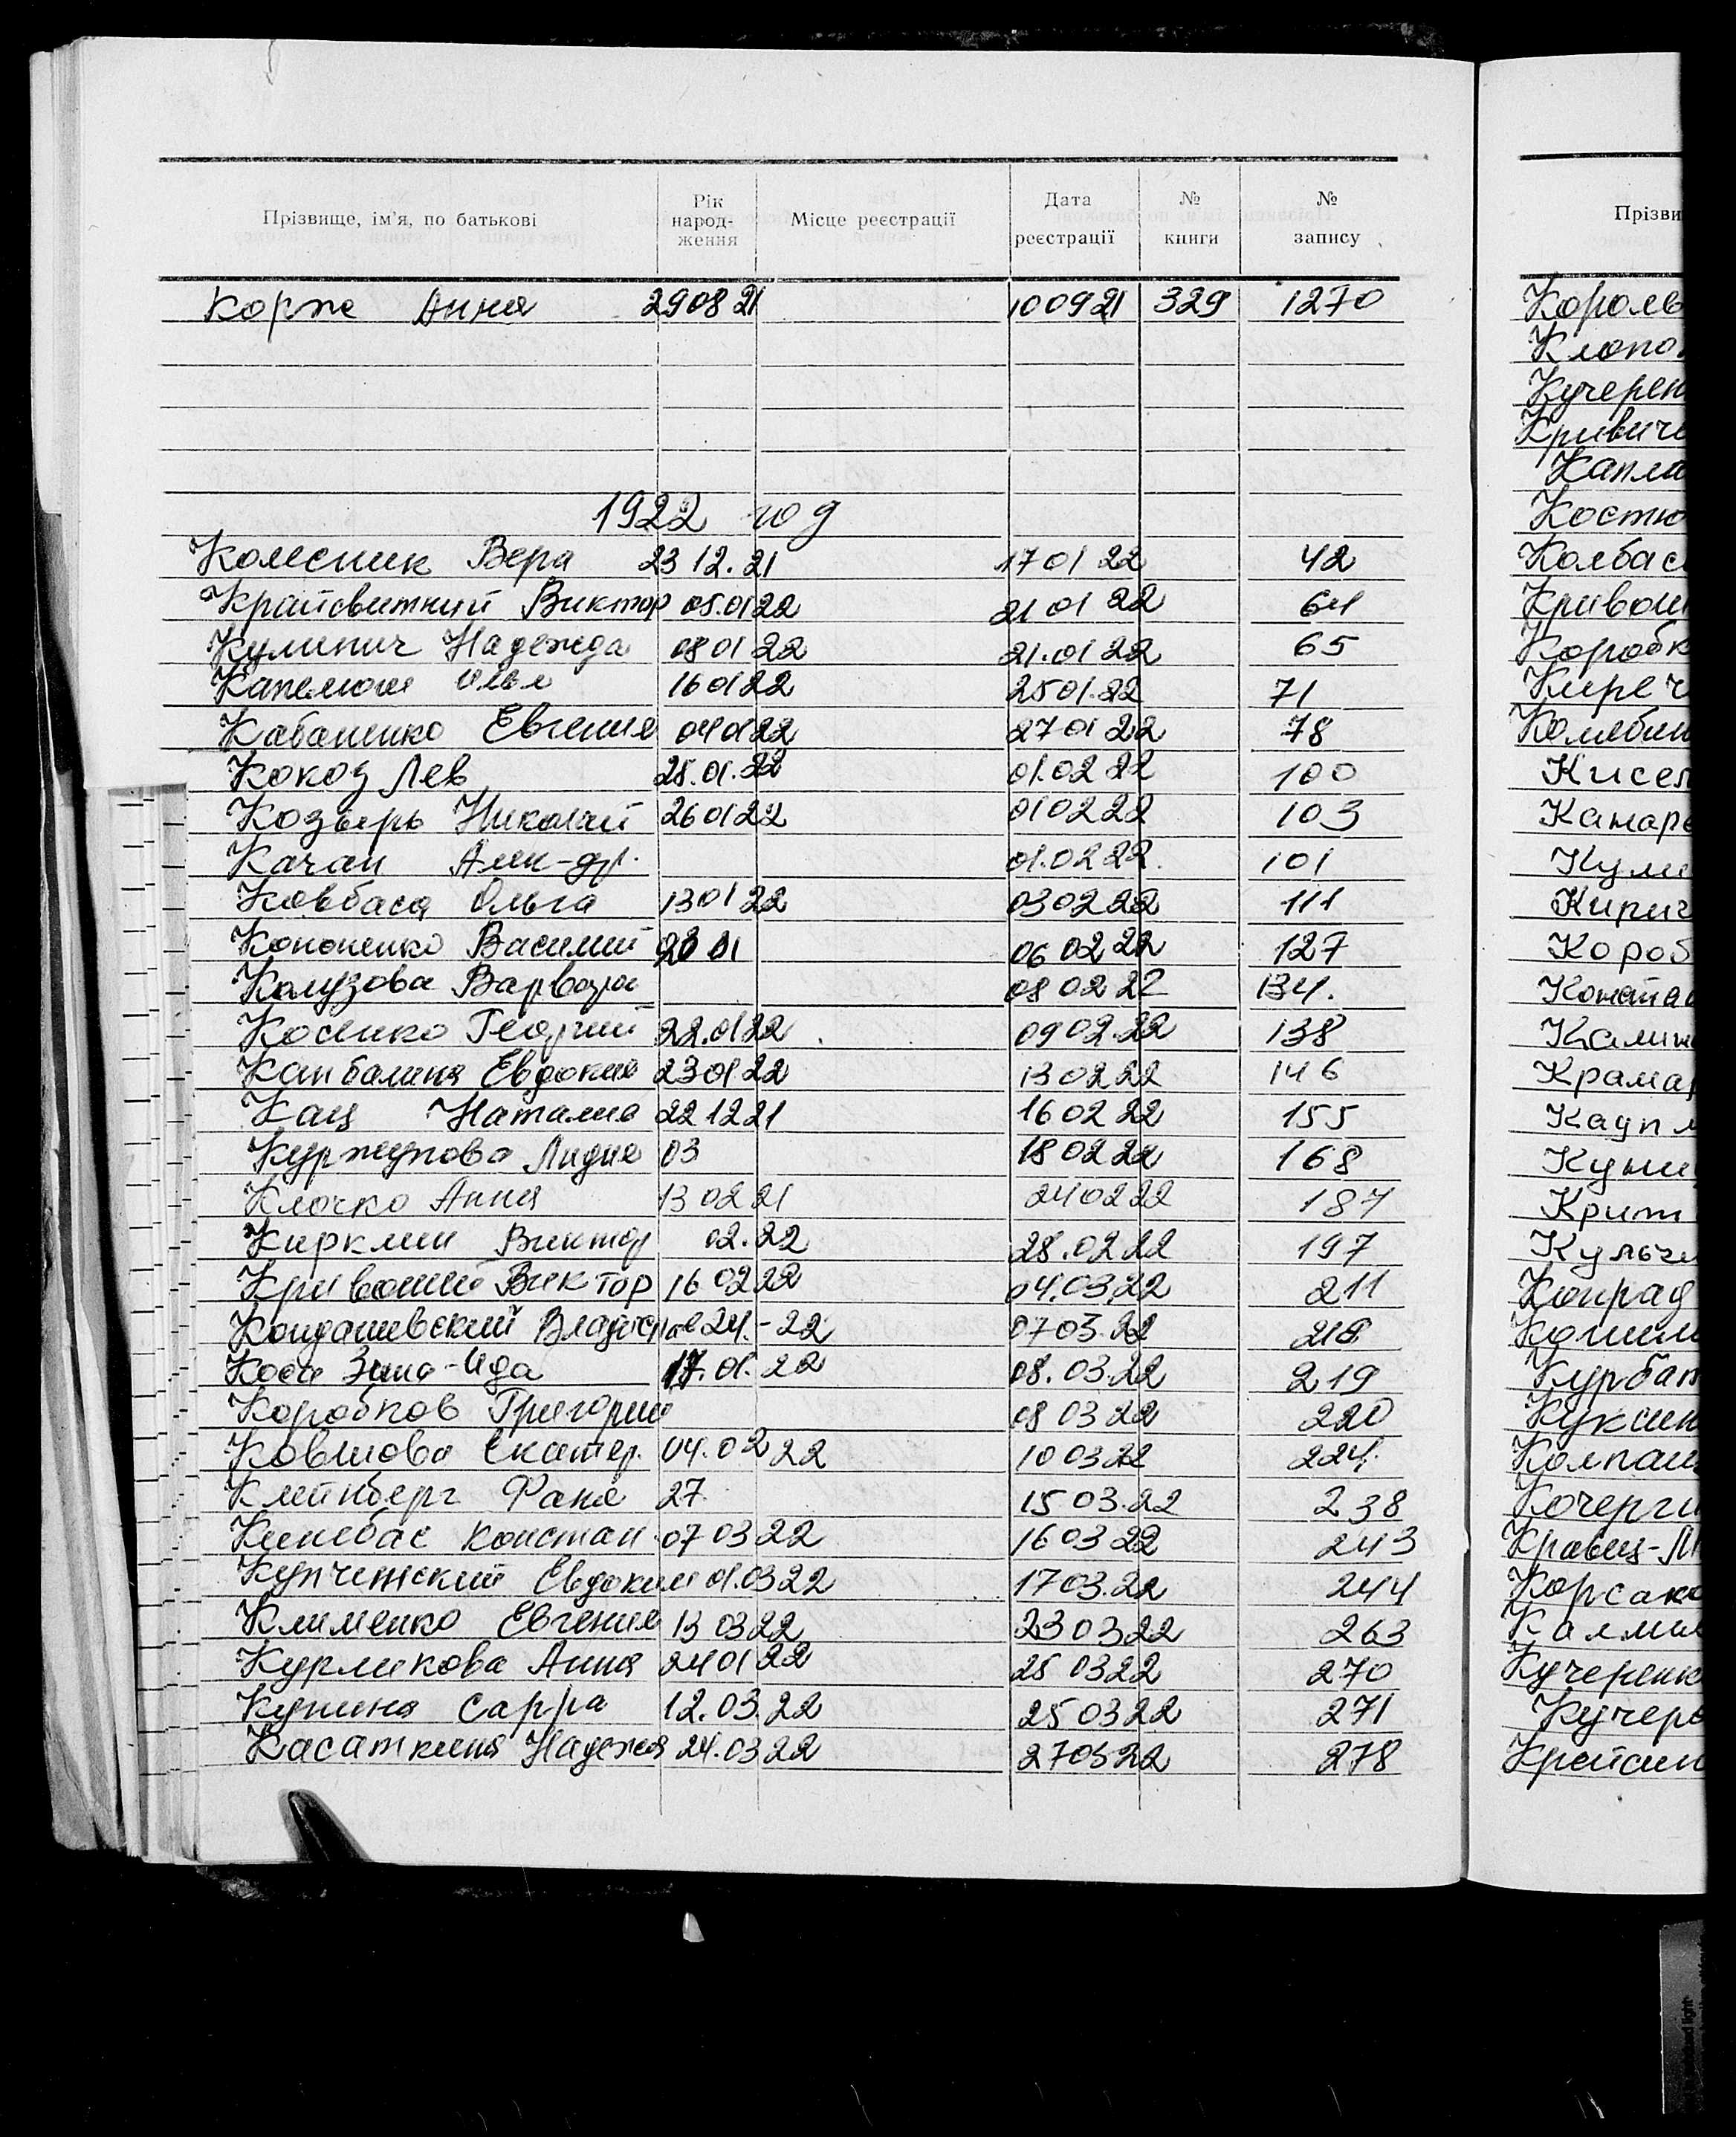 Прізвище, ім'я, по батькові Рік народ-ження Місце реєстрації Дата реєстрації № книги № запису
Корже Анна 290821 100921 329 1270
1922 год
Колесник Вера 23 12.21 17 01 22 42
Крайсвитний Виктор 05.01 22 21 01 22 64
Кулинич Надежда 08 01 22 21.01 22 65
Капелюш 16 01 22 25 01.22 71
Кабаненко Евгения 04 01 22 27 01 22 78
Кокоз Лев 25.01.22 01.02 22 100
Козырь Николай 26 01 22 01 02 22 103
Качан Алек-др. 01.02 22. 101
Ковбаса Ольга 13 01 22 03 02 22 111
Кононенко Василий 01 06 02 22 127
Калузова Варвара 08 02 22 134.
Косенко Георгий 22.01 22 09 02.22 138
Канбалина Евдокия 23 01 22 13 02 22 146
Кац Наталия 22 12 21 16 02 22 155
Куржупова Лидия 03 18 02 22 168
Клочко Анна 13 02 21 24 02 22 187
Кирклии Виктор 02.22 28.02 22 197
Кривоший Виктор 16 02 22 04.03.22 211
Кондашевский Владислав 24.-22 07 03.22 218
Коси Зина-Ида 17.01.22 08.03.22 219
Коробков Григорий 08 03 22 220
Ковшова Екатер. 04.02 22 10 03 22 224.
Клейнберг Фаня 27. 15 03.22 238
Кинебас Констан. 07 03 22 16 03 22 243
Евдоким 01.03 22 17 03.22 244
Клименко Евгения 13 03 22 23 03 22 263
Курликова Анна 24 01 22 25 03 22 270
Купина Сарра 12.03.22 25 03 22 271
Касаткина Надежда 24.03 22 27 03 22 278
Прізви
Король
Клопо
Кучерен
Кривиче
Капла
Костю
Колбас
Кривош
Коробк
Киреч
Колебин
Кисел
Канаре
Кули
Кирич
Короб
Калин
Крамар
Кауп
Куни
Крит
Кульчи
Конрад
Курбат
Куксин
Колпаш
Кочерги
Кравец-М
Корсако
Калми
Кучеренк
Кучере
Крейсин